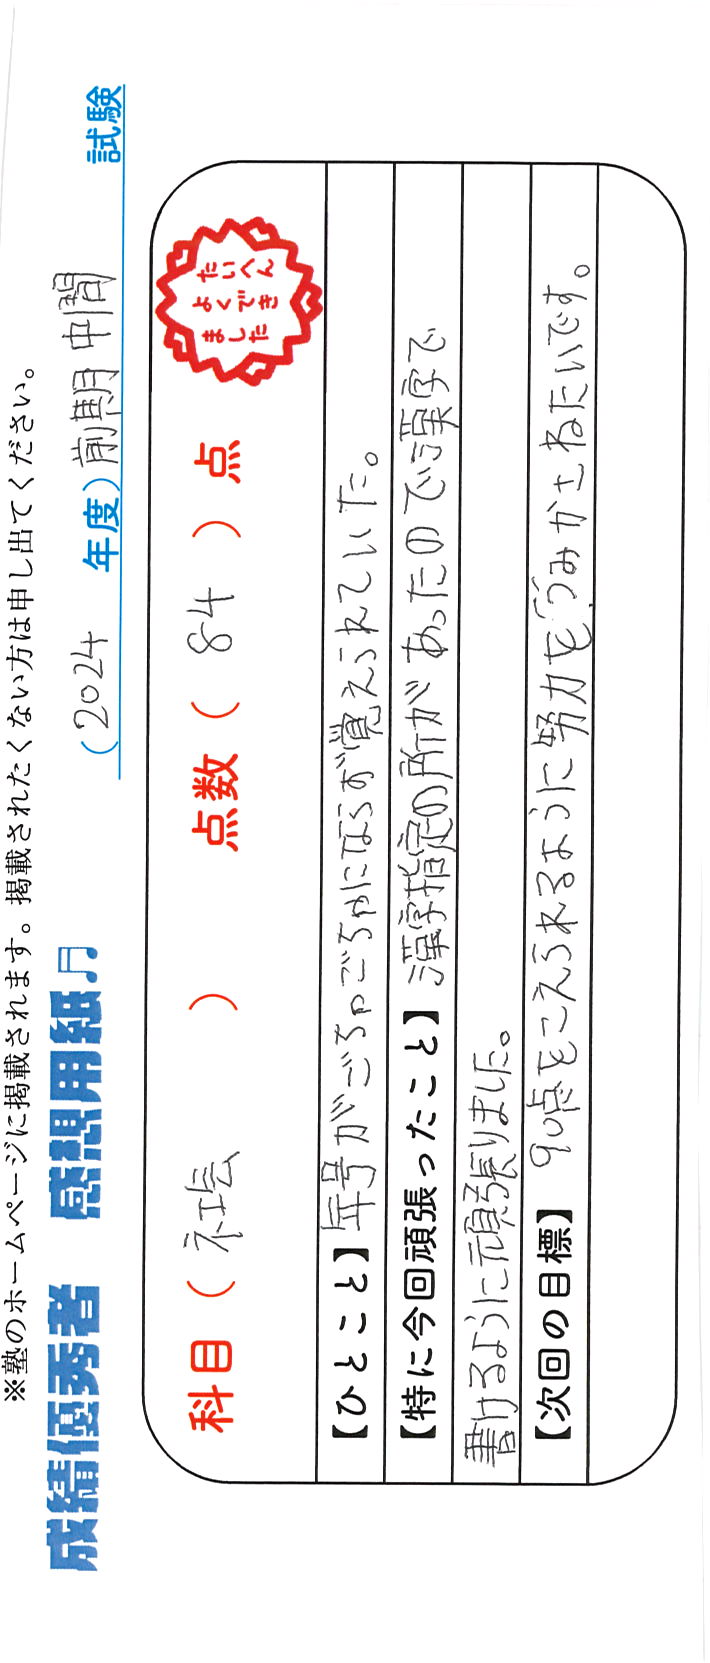 ※塾のホームページに掲載されます。掲載されたくない方は申し出てください。
成績優秀者 感想用紙♫ (2024 年度)前期中間 試験
科目( 社会 ) 点数( 84 )点
たいへん
よくでき
ました
【ひとこと】年号がごちゃごちゃにならず覚えられていた。
【特に今回頑張ったこと】漢字指定の所があったので漢字で
書けるように頑張りました。
【次回の目標】 90点をこえられるように努力をつみかさねたいです。